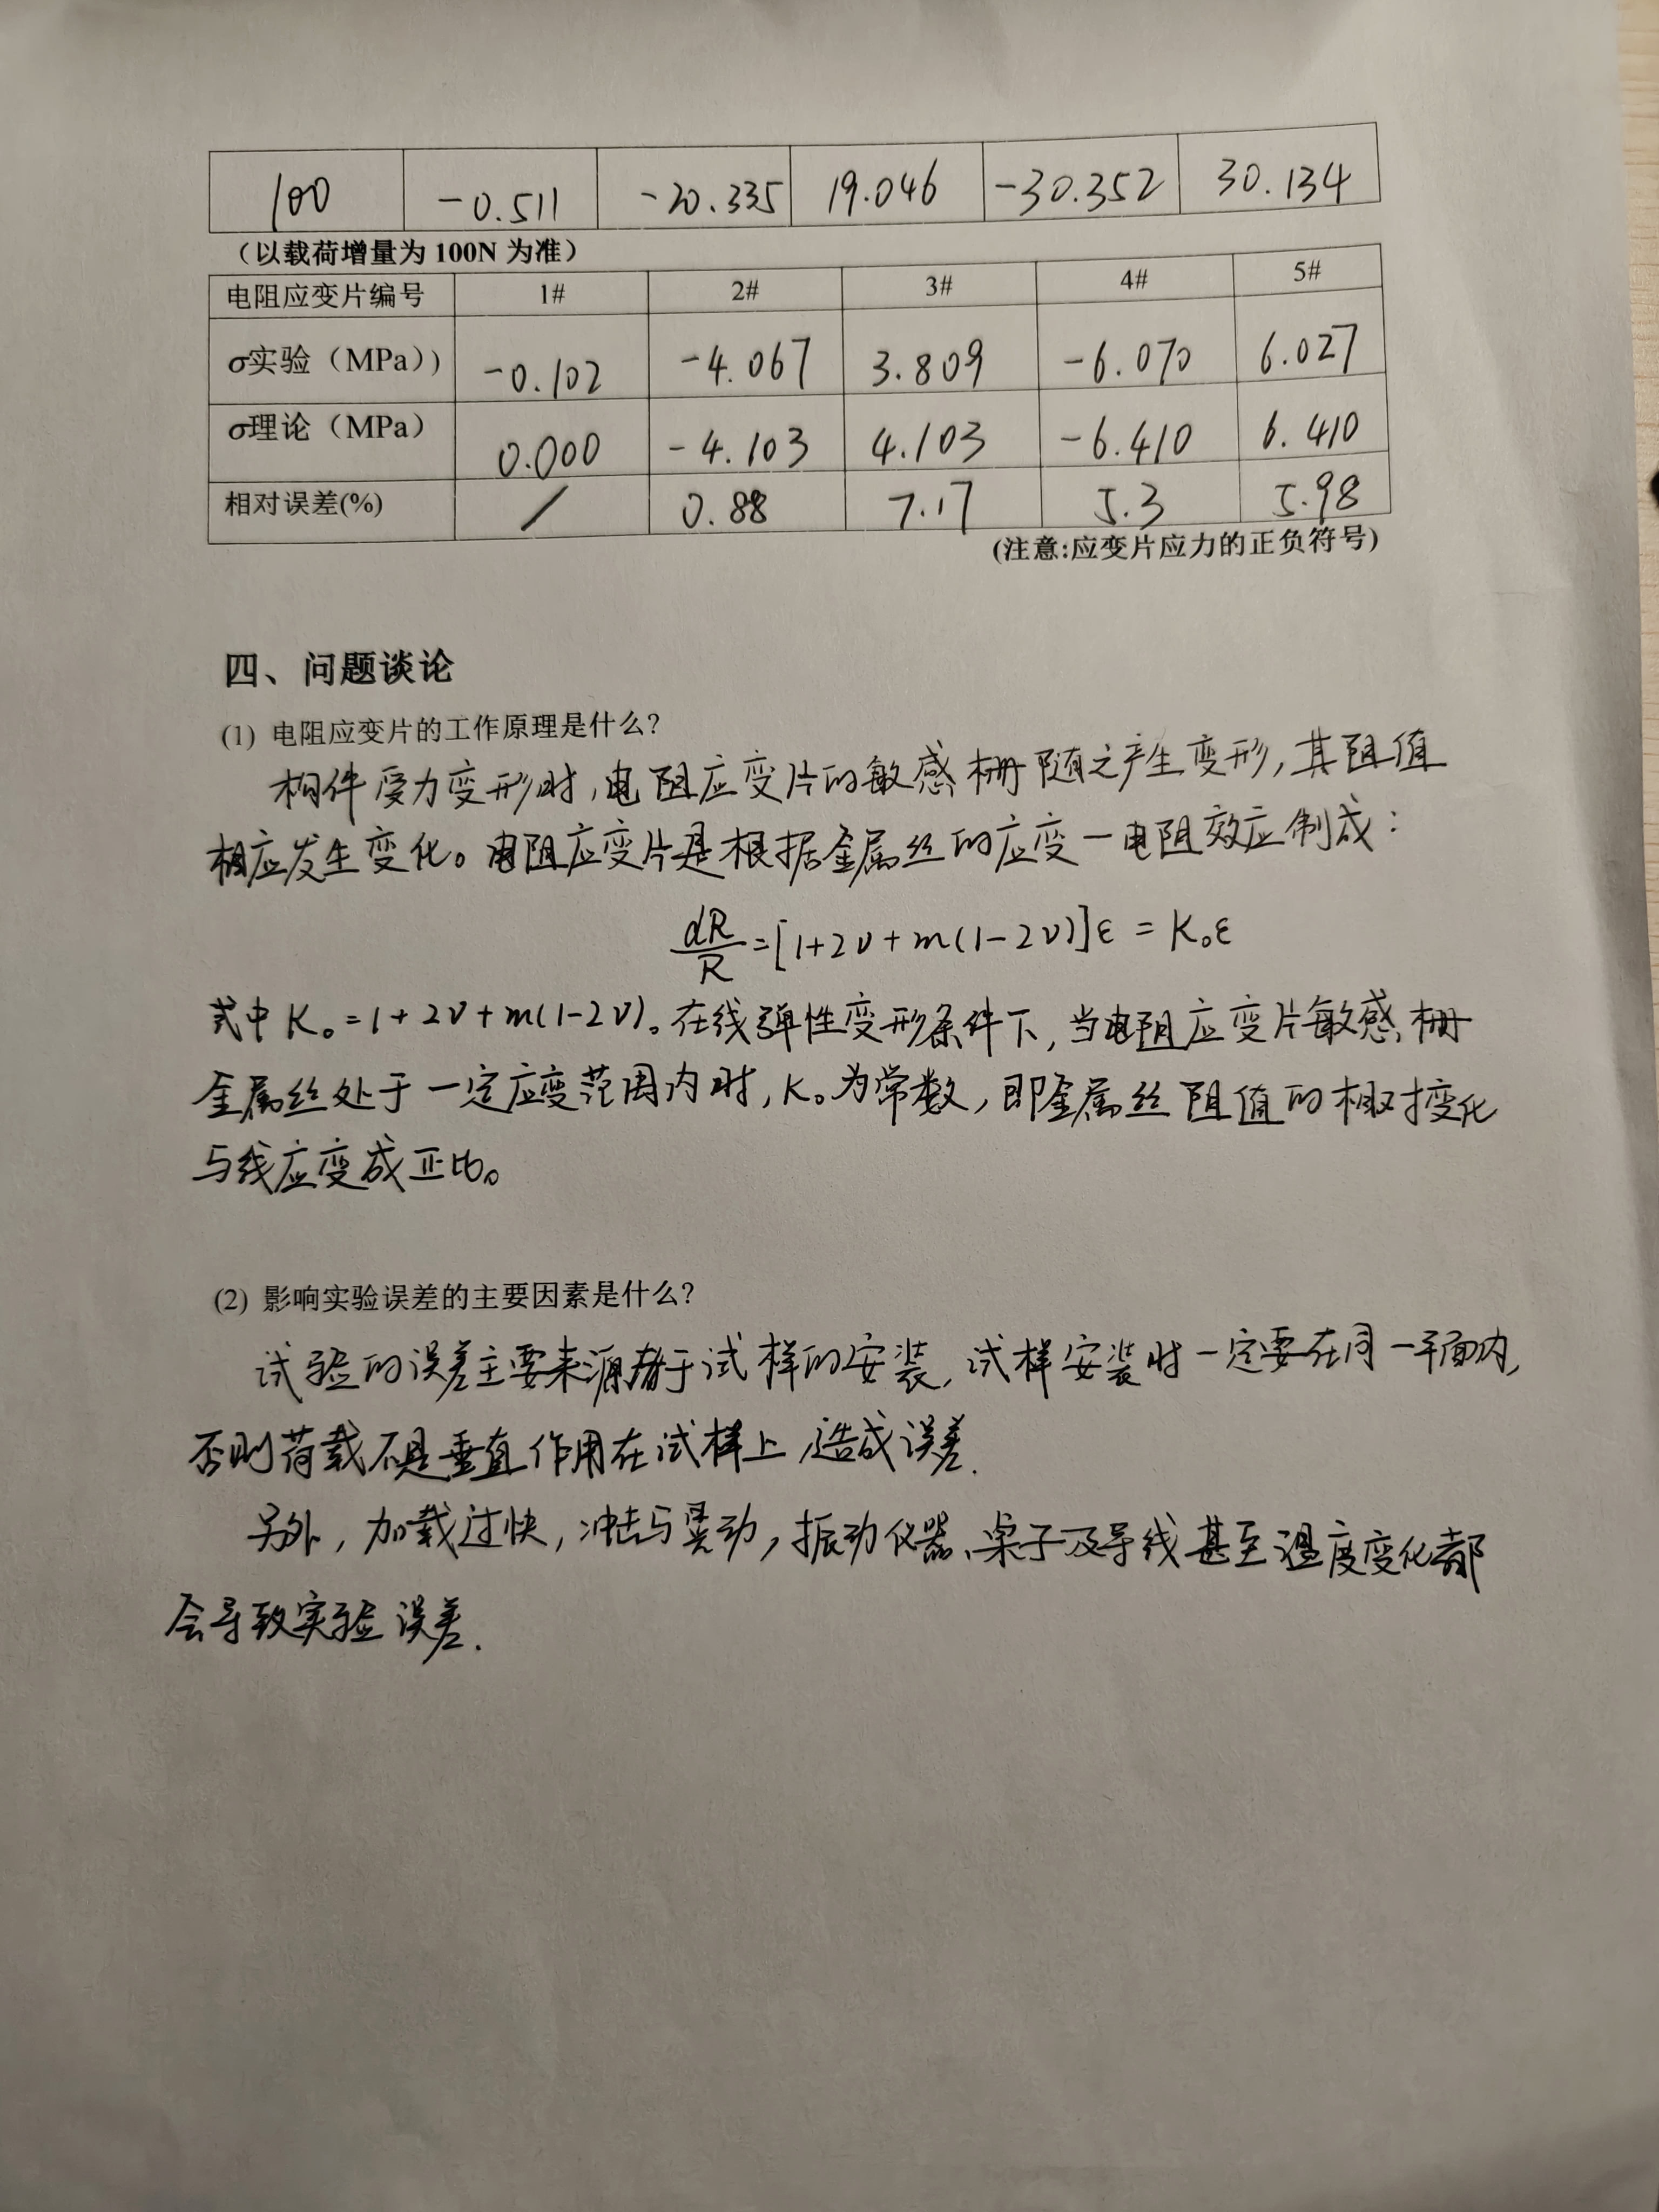 100 -0.511 -20.335 19.046 -30.352 30.134
（以载荷增量为 100N 为准）
电阻应变片编号 1# 2# 3# 4# 5#
σ实验（MPa)） -0.102 -4.067 3.809 -6.070 6.027
σ理论（MPa） 0.000 -4.103 4.103 -6.410 6.410
相对误差(%) / 0.88 7.17 5.3 5.98
(注意:应变片应力的正负符号)
四、问题谈论
(1) 电阻应变片的工作原理是什么?
构件受力变形时,电阻应变片的敏感栅随之产生变形,其阻值
相应发生变化。电阻应变片是根据金属丝的应变—电阻效应制成:
dR/R=[1+2ν+m(1-2ν)]ε = K₀ε
式中K₀=1+2ν+m(1-2ν)。在线弹性变形条件下,当电阻应变片敏感栅
金属丝处于一定应变范围内时,K₀为常数,即金属丝阻值的相对变化
与线应变成正比。
(2) 影响实验误差的主要因素是什么?
试验的误差主要来源于试样的安装,试样安装时一定要在同一平面内,
否则荷载不是垂直作用在试样上,造成误差.
另外,加载过快,冲击与晃动,振动仪器、桌子及导线甚至温度变化都
会导致实验误差.